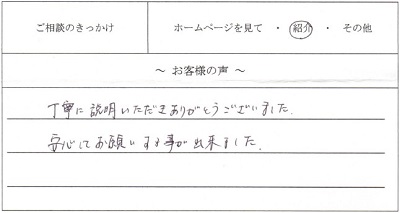 ご相談のきっかけ
ホームページを見て ・ 紹介 ・ その他
～ お客様の声 ～
丁寧に説明いただきありがとうございました.
安心してお願いする事が出来ました.